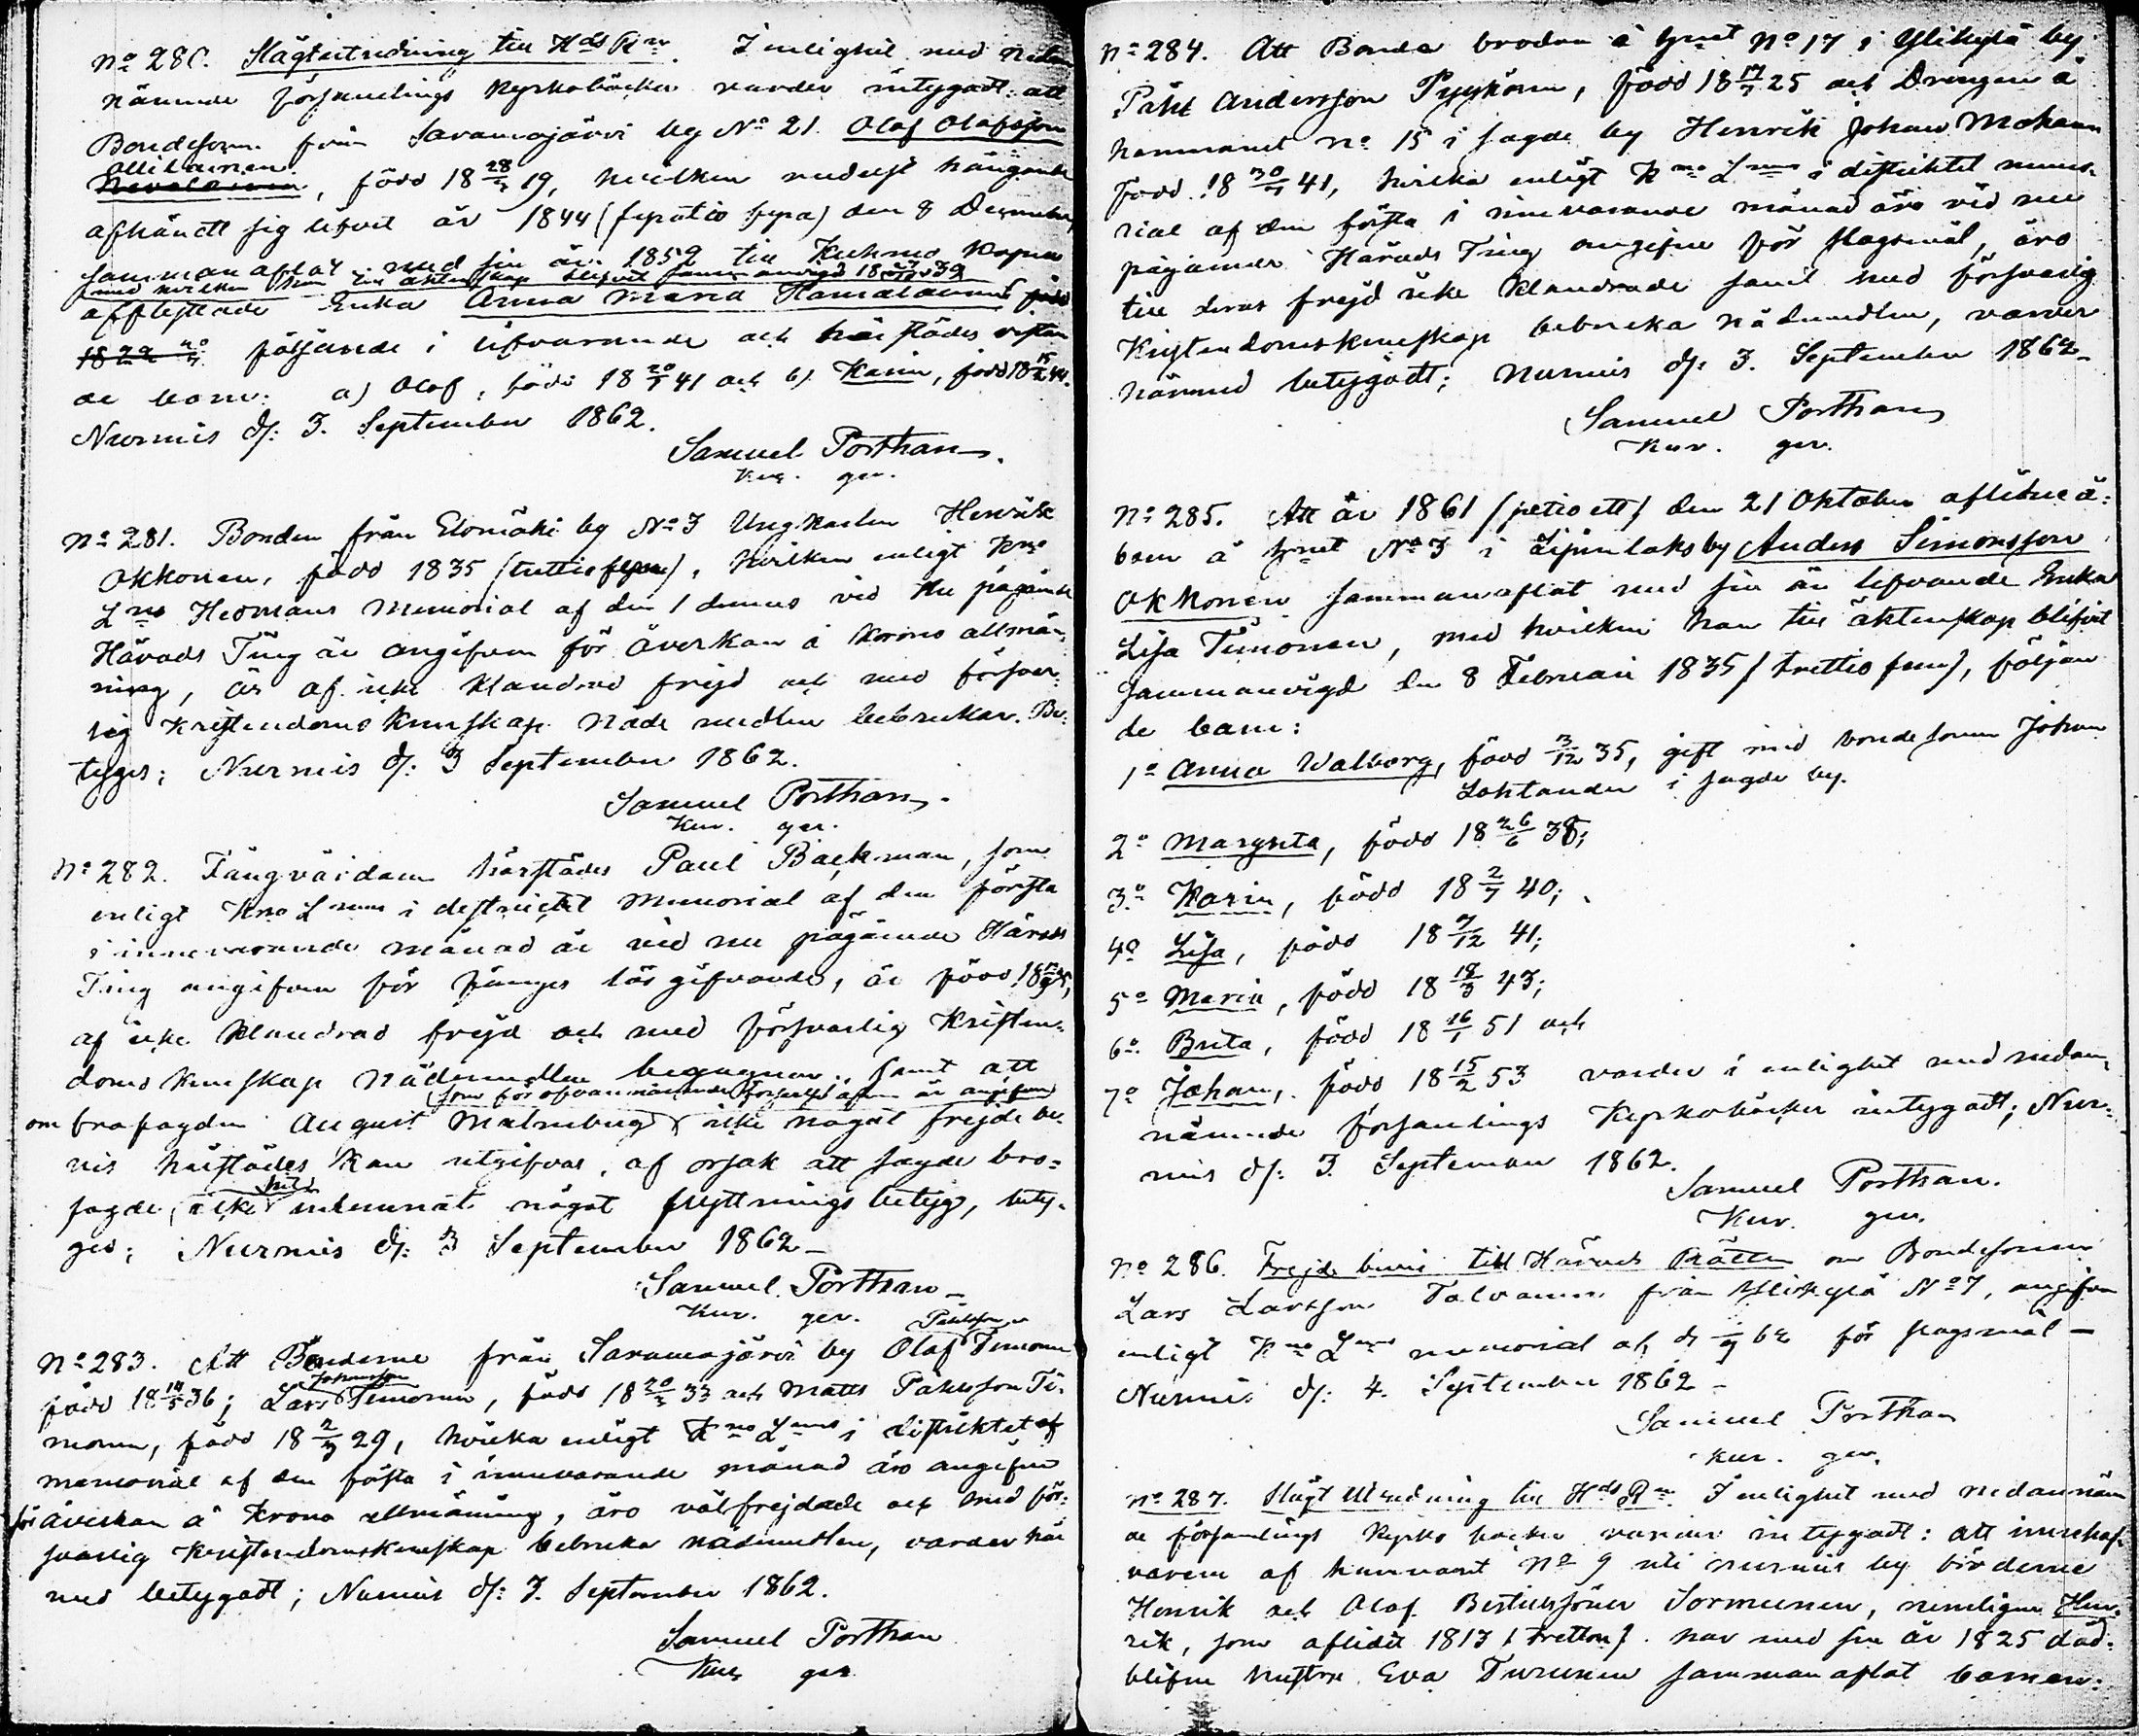 No 280. Slägtutredning till Hds Rn. I enlighet med nedan
nämnde församlings Kyrkoböcker varder intygadt: att
Bondesonen från Saramojärvi by No 21. Olof Olofsson
Ollikainen
, född 18 28/2 19, hvilken medelst hängande
afhändt sig lifvet år 1844 (fyratio fyra) den 8 December,
sammanaflat med sin år 1859 till Kuhmo Kapell
med hvilken han till äktenskap blifvit sammanvigd 18 39
afflyttade Enka Anna Maria Hämäläinen född
1822 följande i lifvarande och härstädes vistan-
de barn: a) Olof, född 18 20/1 41 och b) Karin, född 18 15/2 44.
Nurmis d: 3. September 1862.
Samuel Porthan.
Kur. ger.
No 281. Bonden från Elomäki by No 3 Ungkarlen Henrik
Okkonen, född 1835 (trettiofem), hvilken enligt Kno
Lns Hedmans Memorial af den 1 dennes vid nu pågående
Härads Ting är angifven för åverkan å Krono allmän-
ning, är af icke klandrad frejd och med försvar-
lig Kristendoms Kunskap Nåde medlen bebrukar. Be-
tygas; Nurmis d: 3 September 1862.
Samuel Porthan.
Kur. ger.
No 282. Fångvärdaren härstädes Paul Backman, som
enligt Kno Lnns i destrictet Memorial af den första
i innevarande månad är vid nu pågående Härads
Ting angifven för fånges lös gifvande, är född 18
af icke klandrad frejd och med försvarlig Kristen-
doms Kunskap Nådemedlen begagnar, samt att
som för ofvannämnde är angifven
om brofogden August Malmberg icke något frejdebe-
vis härstädes kan utgifvas, af orsak att sagde bro-
fogde icke inlemnat något flyttnings betyg, bety-
gas; Nurmis d: 3 September 1862
Samuel Porthan
Kur. ger.
Påhlsson
No 283. Att Bönderne från Saramojärvi by Olof Timonen
Johansson
född 18 36; Lars Timonen, född 18 20/3 33 och Matts Påhlsson Ti-
monen, född 18 2/9 29, hvilka enligt Kno Lnns i distriktet
memorial af den första i innevarande månad äro angifne
för åverkan å Krono allmänning, äro välfrejdade och med för-
svarlig Kristendomskunskap bebruka nådemedlen, varder här
med betygadt; Nurmis d: 3. September 1862.
Samuel Porthan
Kur. ger
No 284. Att Bonde brodren å hmnt No 17 i Ylikylä by
Påhl Andersson Pyykönen, född 18 17/7 25 och Drengen å
hemmanet No 15 i sagde by Henrik Johan Mohanen
född 18 30/4 41, hvilka enligt Kno Lnns i distriktet memo-
rial af den första i innevarande månad äro vid nu
pågående Härads Ting angifne för slagsmål, äro
till deras frejd icke klandrade samt med försvarlig
Kristendomskunskap bebruka nådemedlen, varder
härmed betygadt; Nurmis d: 3. September 1862
Samuel Porthan
Kur. ger.
No 285. Att år 1861 (sextio ett) den 21 Oktober aflidne å-
boen å hmnt No 3 i Lipinlaks by Anders Simonsson
Okkonen sammanaflat med sin än lefvande Enka
Lisa Timonen, med hvilken han till äktenskap blifvit
sammanvigd den 8 Februari 1835 (trettio fem), följan
de barn:
1o Anna Walborg, född 3/12 35, gift med bondesonen Johan
Lohtander i sagde by.
2o Margreta, född 18 26/6 38;
3o Karin, född 18 2/7 40;
4o Lisa, född 18 7/12 41;
5o Maria, född 18 18/3 43;
6o Brita, född 18 16/1 51 och
7o Johan, född 18 15/2 53 varder i enlighet med nedan-
nämnde församlings Kyrkoböcker intygadt; Nur-
mis d: 3. September 1862.
Samuel Porthan.
Kur. ger.
No 286. Frejde bevis till Härads Rätten om Bondesonen
Lars Larsson Tolvanen från Ylikylä No 7, angifven
enligt Kno Lnns memorial af d 1/9 62 för slagsmål —
Nurmis d: 4. September 1862 —
Samuel Porthan
Kur. ger.
No 287. Slägt Utredning till Hds Rn. I enlighet med nedannämn
de församlings Kyrko böcker varder intygadt: att innehaf-
varene af hemmanet No 9 uti Nurmis by bröderne
Henrik och Olof Bertilssöner Sormunen, nemligen Hen-
rik, som aflidit 1813 (tretton). har med sin år 1825 död-
blifne hustru Eva Turunen sammanaflat barnen: